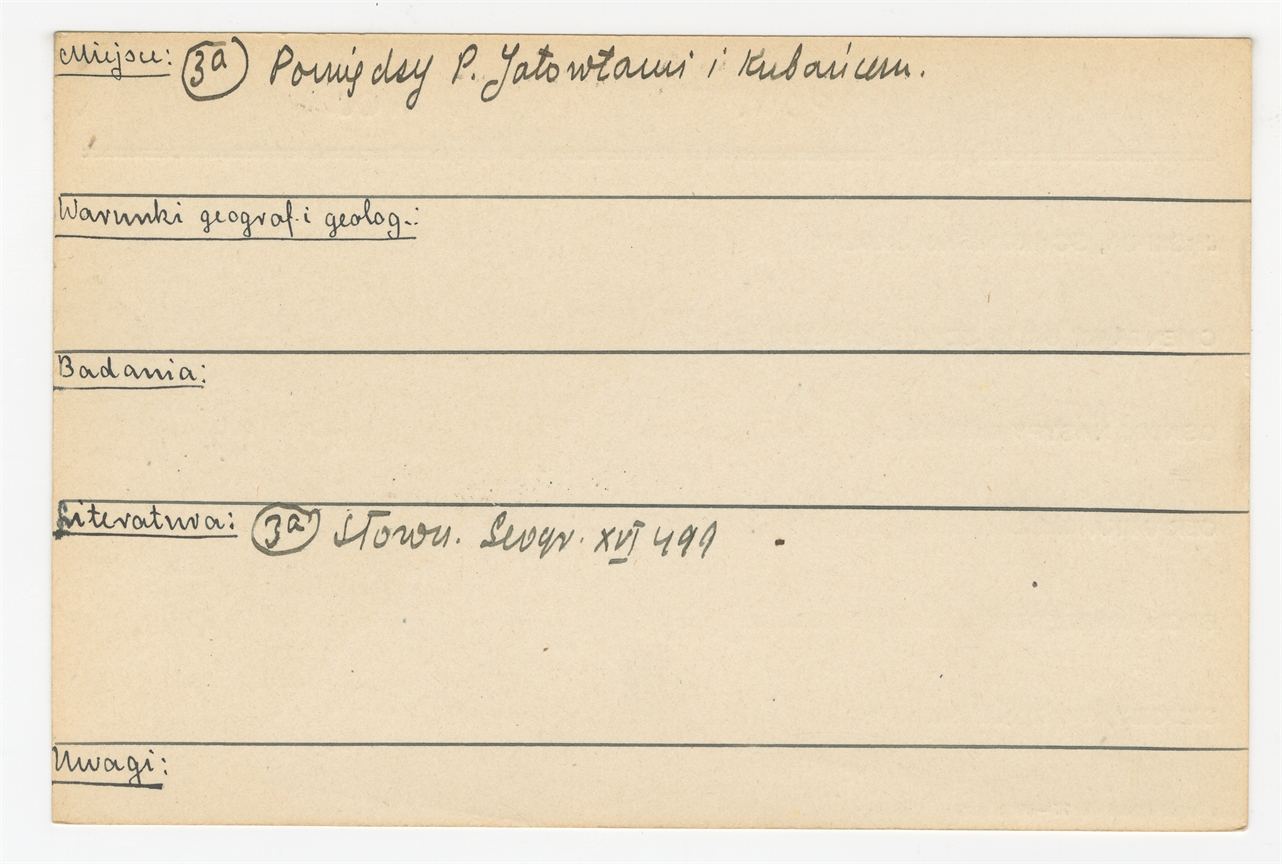 Miejsce: 3a Pomiędzy P. Jatowtami i Kubańcem.
Warunki geograf. i geolog.:
Badania:
Literatura: 3a Słown. Geogr. XVI 499
Uwagi: